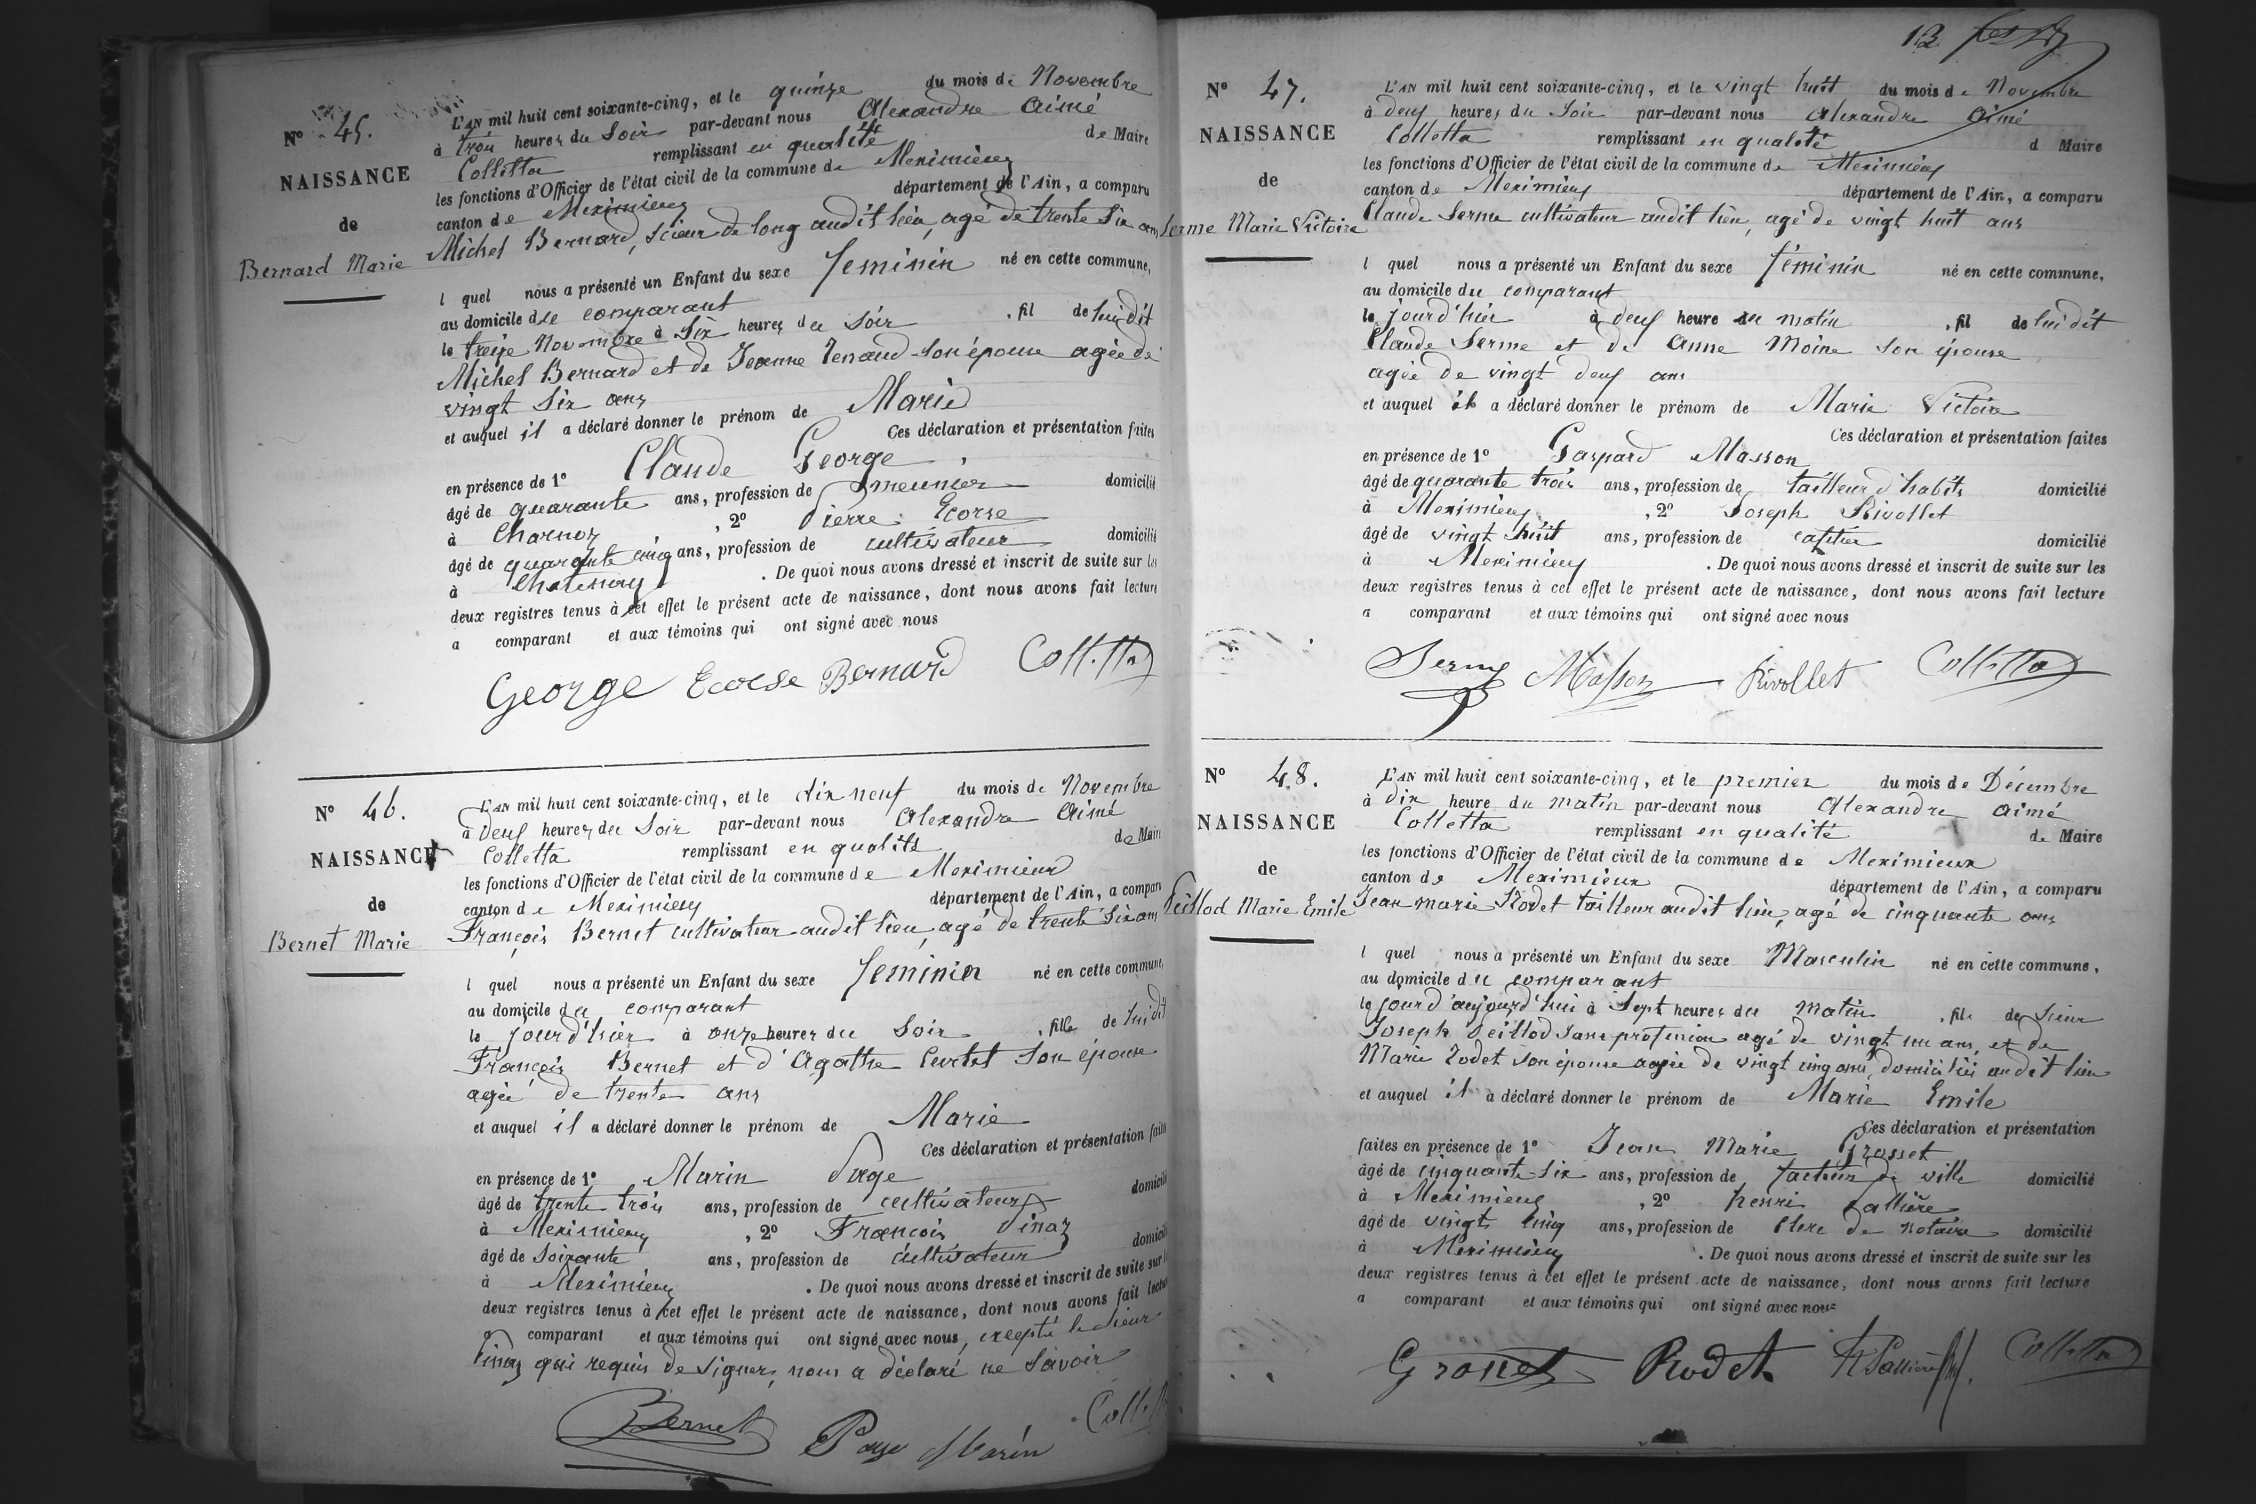 Nº 45.
NAISSANCE
de
Bernard Marie
L'AN mil huit cent soixante-cinq, et le quinze du mois de Novembre
à trois heures du Soir par-devant nous Alexandre Aimé
Colletta remplissant en qualité de Maire
les fonctions d'Officier de l'état civil de la commune de Meximieux
canton de Meximieux département de l'Ain, a comparu
Michel Bernard, scieur de long audit lieu, agé de trente six ans
l quel nous a présenté un Enfant du sexe feminin né en cette commune,
au domicile du comparant
le treize Novembre à Six heures du Soir , fil de lui dit
Michel Bernard et de Jeanne Tenaud son épouse agée de
vingt six ans
et auquel il a déclaré donner le prénom de Marie
Ces déclaration et présentation faites
en présence de 1º Claude George
âgé de quarante ans, profession de meunier domicilié
à Charnoz , 2º Pierre Ecorse
âgé de quarante cinq ans, profession de cultivateur domicilié
à . De quoi nous avons dressé et inscrit de suite sur les
deux registres tenus à cet effet le présent acte de naissance, dont nous avons fait lecture
a comparant et aux témoins qui ont signé avec nous
George Ecorse Bernard Colletta
Nº 46.
NAISSANCE
de
Bernet Marie
L'AN mil huit cent soixante-cinq, et le dix neuf du mois de Novembre
à deux heures du Soir par-devant nous Alexandre Aimé
Colletta remplissant en qualité de Maire
les fonctions d'Officier de l'état civil de la commune de Meximieux
canton de Meximieux département de l'Ain, a comparu
François Bernet cultivateur audit lieu, agé de trente six ans
l quel nous a présenté un Enfant du sexe feminin né en cette commune,
au domicile du comparant
le jour d'hier à onze heures du Soir , fille de lui dit
François Bernet et d'Agathe Curtet son épouse
agée de trente ans
et auquel il a déclaré donner le prénom de Marie
Ces déclaration et présentation faites
en présence de 1º Marin Page
âgé de trente trois ans, profession de cultivateur domicilié
à Meximieux , 2º François Pinaz
âgé de soixante ans, profession de cultivateur domicilié
à Meximieux . De quoi nous avons dressé et inscrit de suite sur les
deux registres tenus à cet effet le présent acte de naissance, dont nous avons fait lecture
a comparant et aux témoins qui ont signé avec nous, excepté le sieur
Pinaz qui requis de signer, nous a déclaré ne savoir
Bernet Page Marin Colletta
12
Nº 47.
NAISSANCE
de
Serme Marie Victoire
L'AN mil huit cent soixante-cinq, et le vingt huit du mois de Novembre
à deux heures du Soir par-devant nous Alexandre Aimé
Colletta remplissant en qualité d Maire
les fonctions d'Officier de l'état civil de la commune de Meximieux
canton de Meximieux département de l'Ain, a comparu
Claude Serme cultivateur audit lieu, agé de vingt huit ans
l quel nous a présenté un Enfant du sexe féminin né en cette commune,
au domicile du comparant
le jour d'hier à deux heure du matin , fil de lui dit
Claude Serme et de Anne Moine son épouse
agée de vingt deux ans
et auquel il a déclaré donner le prénom de Marie Victoire
Ces déclaration et présentation faites
en présence de 1º Gaspard Masson
âgé de quarante trois ans, profession de tailleur d'habits domicilié
à Meximieux , 2º Joseph Rivollet
âgé de vingt huit ans, profession de cafetier domicilié
à Meximieux . De quoi nous avons dressé et inscrit de suite sur les
deux registres tenus à cet effet le présent acte de naissance, dont nous avons fait lecture
a comparant et aux témoins qui ont signé avec nous
Serme Masson Rivollet Colletta
Nº 48.
NAISSANCE
de
Peillod Marie Emile
L'AN mil huit cent soixante-cinq, et le premier du mois de Décembre
à dix heure du matin par-devant nous Alexandre Aimé
Colletta remplissant en qualité de Maire
les fonctions d'Officier de l'état civil de la commune de Meximieux
canton de Meximieux département de l'Ain, a comparu
Jean Marie Rodet tailleur audit lieu, agé de cinquante ans
l quel nous a présenté un Enfant du sexe Masculin né en cette commune,
au domicile du comparant
le jour d'aujourd'hui à Sept heures du matin , fils de Sieur
Joseph Peillod sans profession agé de vingt un ans, et de
Marie Rodet son épouse agée de vingt cinq ans, domiciliés audit lieu
et auquel il a déclaré donner le prénom de Marie Emile
Ces déclaration et présentation
faites en présence de 1º Jean Marie Grosset
âgé de cinquante six ans, profession de facteur de ville domicilié
à Meximieux , 2º henri Pallière
âgé de vingt cinq ans, profession de Clerc de notaire domicilié
à Meximieux . De quoi nous avons dressé et inscrit de suite sur les
deux registres tenus à cet effet le présent acte de naissance, dont nous avons fait lecture
a comparant et aux témoins qui ont signé avec nous
Grosset Rodet H Pallière Colletta